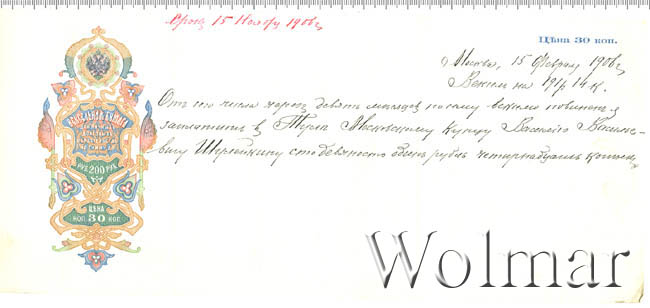 Срокъ 15 Ноября 1906 г.
Цѣна 30 коп.
Москва, 15 Февраля 1906 г.
Вексель на 191 р. 14 к.
Отъ сего числа черезъ девять мѣсяцевъ по сему векселю повиненъ я
заплатить въ Московскому купцу Василью Василье-
вичу сто девяносто одинъ рубль четырнадцать копѣекъ
ВЕКСЕЛЬНАЯ БУМАГА
РУБ. 200 РУБ.
ЦѢНА
КОП. 30 КОП.
Wolmar